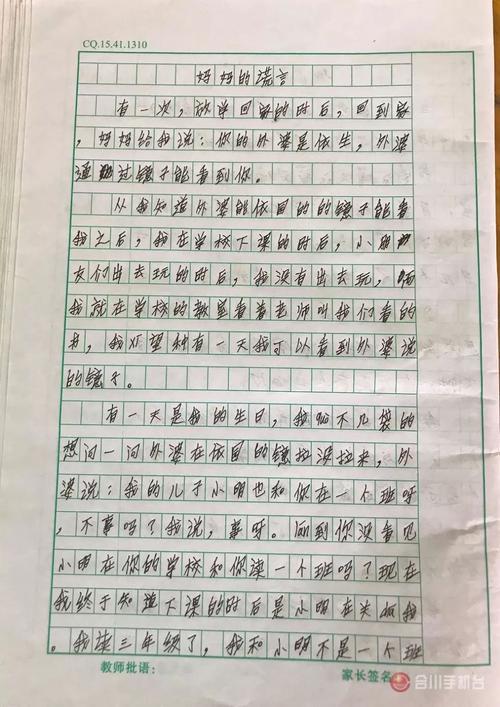 CQ.15.41.1310
妈妈的谎言
有一次，放学回家的时后，回到家
，妈妈给我说：你的外婆是依生，外婆
通过镜子能看到你。
从我知道外婆能依回的的镜子能看
我之后，我在学校下课的时后，小朋
友们出去玩的时后，我没有出去玩，
我就在学校的教室看着老师叫我们看的
书，我希望有一天我可以看到外婆说
的镜子。
有一天是我的生日，我不几袋的
想问一问外婆在依回的镜拉波拉来，外
婆说：我的儿子小明也和你在一个班呀
，不事吗？我说，事呀。问到你没看见
小明在你的学校和你读一个班吗？现在
我终于知道下课的时后是小明在关我
。我读三年级了，我和小明不是一个班
教师批语：
家长签名
合川手机台